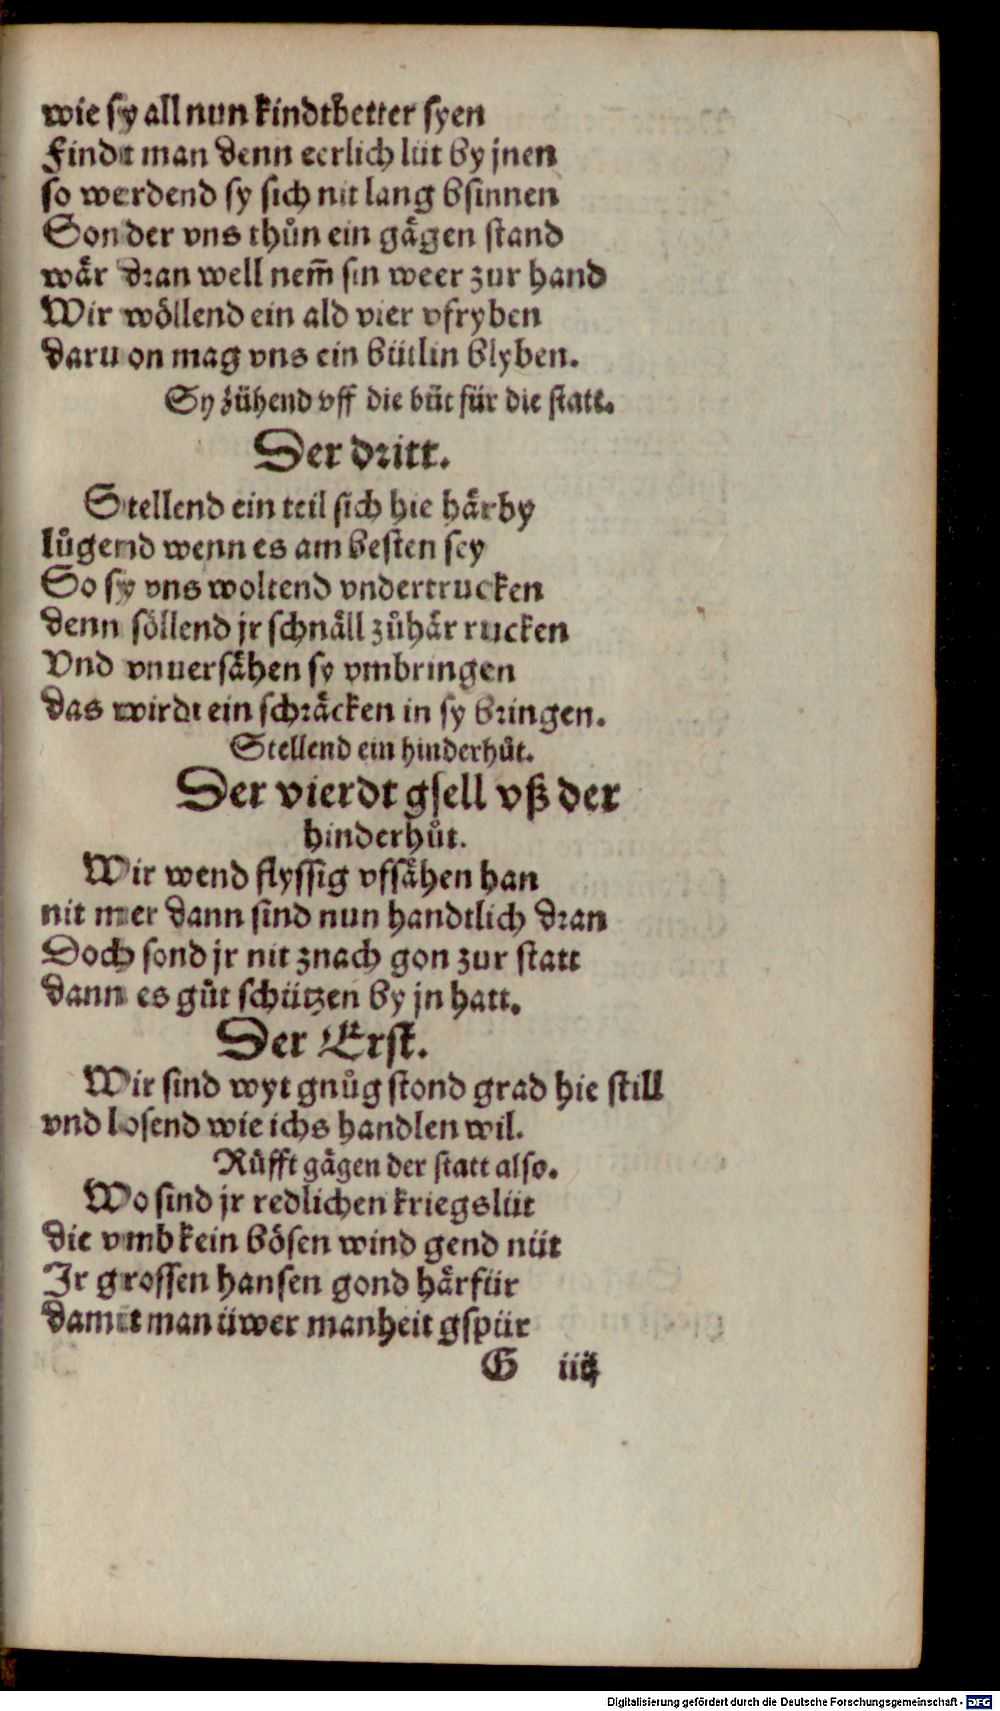 wie sy all nun kindtbetter syen
Findt man denn eerlich lüt by jnen
so werdend sy sich nit lang bsinnen
Sonder vns thůn ein gägen stand
wär dran well nem̃ sin weer zur hand
Wir wöllend ein ald vier vfryben
daruon mag vns ein bütlin blyben.
Sy zühend vff die büt für die statt.
Der dritt.
Stellend ein teil sich hie härby
lůgend wenn es am besten sey
So sy vns woltend vndertrucken
denn söllend jr schnäll zůhär rucken
Vnd vnuersähen sy vmbringen
das wirdt ein schräcken in sy bringen.
Stellend ein hinderhůt.
Der vierdt gsell vß der
hinderhůt.
Wir wend flyssig vfsähen han
nit meer dann sind nun handtlich dran
Doch sond jr nit znach gon zur statt
dann es gůt schützen by jn hatt.
Der Erst.
Wir sind wyt gnůg stond grad hie still
vnd losend wie ichs handlen wil.
Růfft gägen der statt also.
Wo sind jr redlichen kriegslüt
die vmb kein bösen wind gend nüt
Jr grossen hansen gond härfür
damit man üwer manheit gspür
G iiij
Digitalisierung gefördert durch die Deutsche Forschungsgemeinschaft - DFG